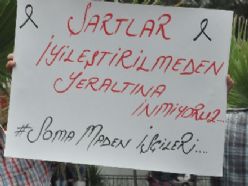 ŞARTLAR
İYİLEŞTİRİLMEDEN
YERALTINA
İNMİYORUZ...
#SOMA MADEN İŞÇİLERİ....